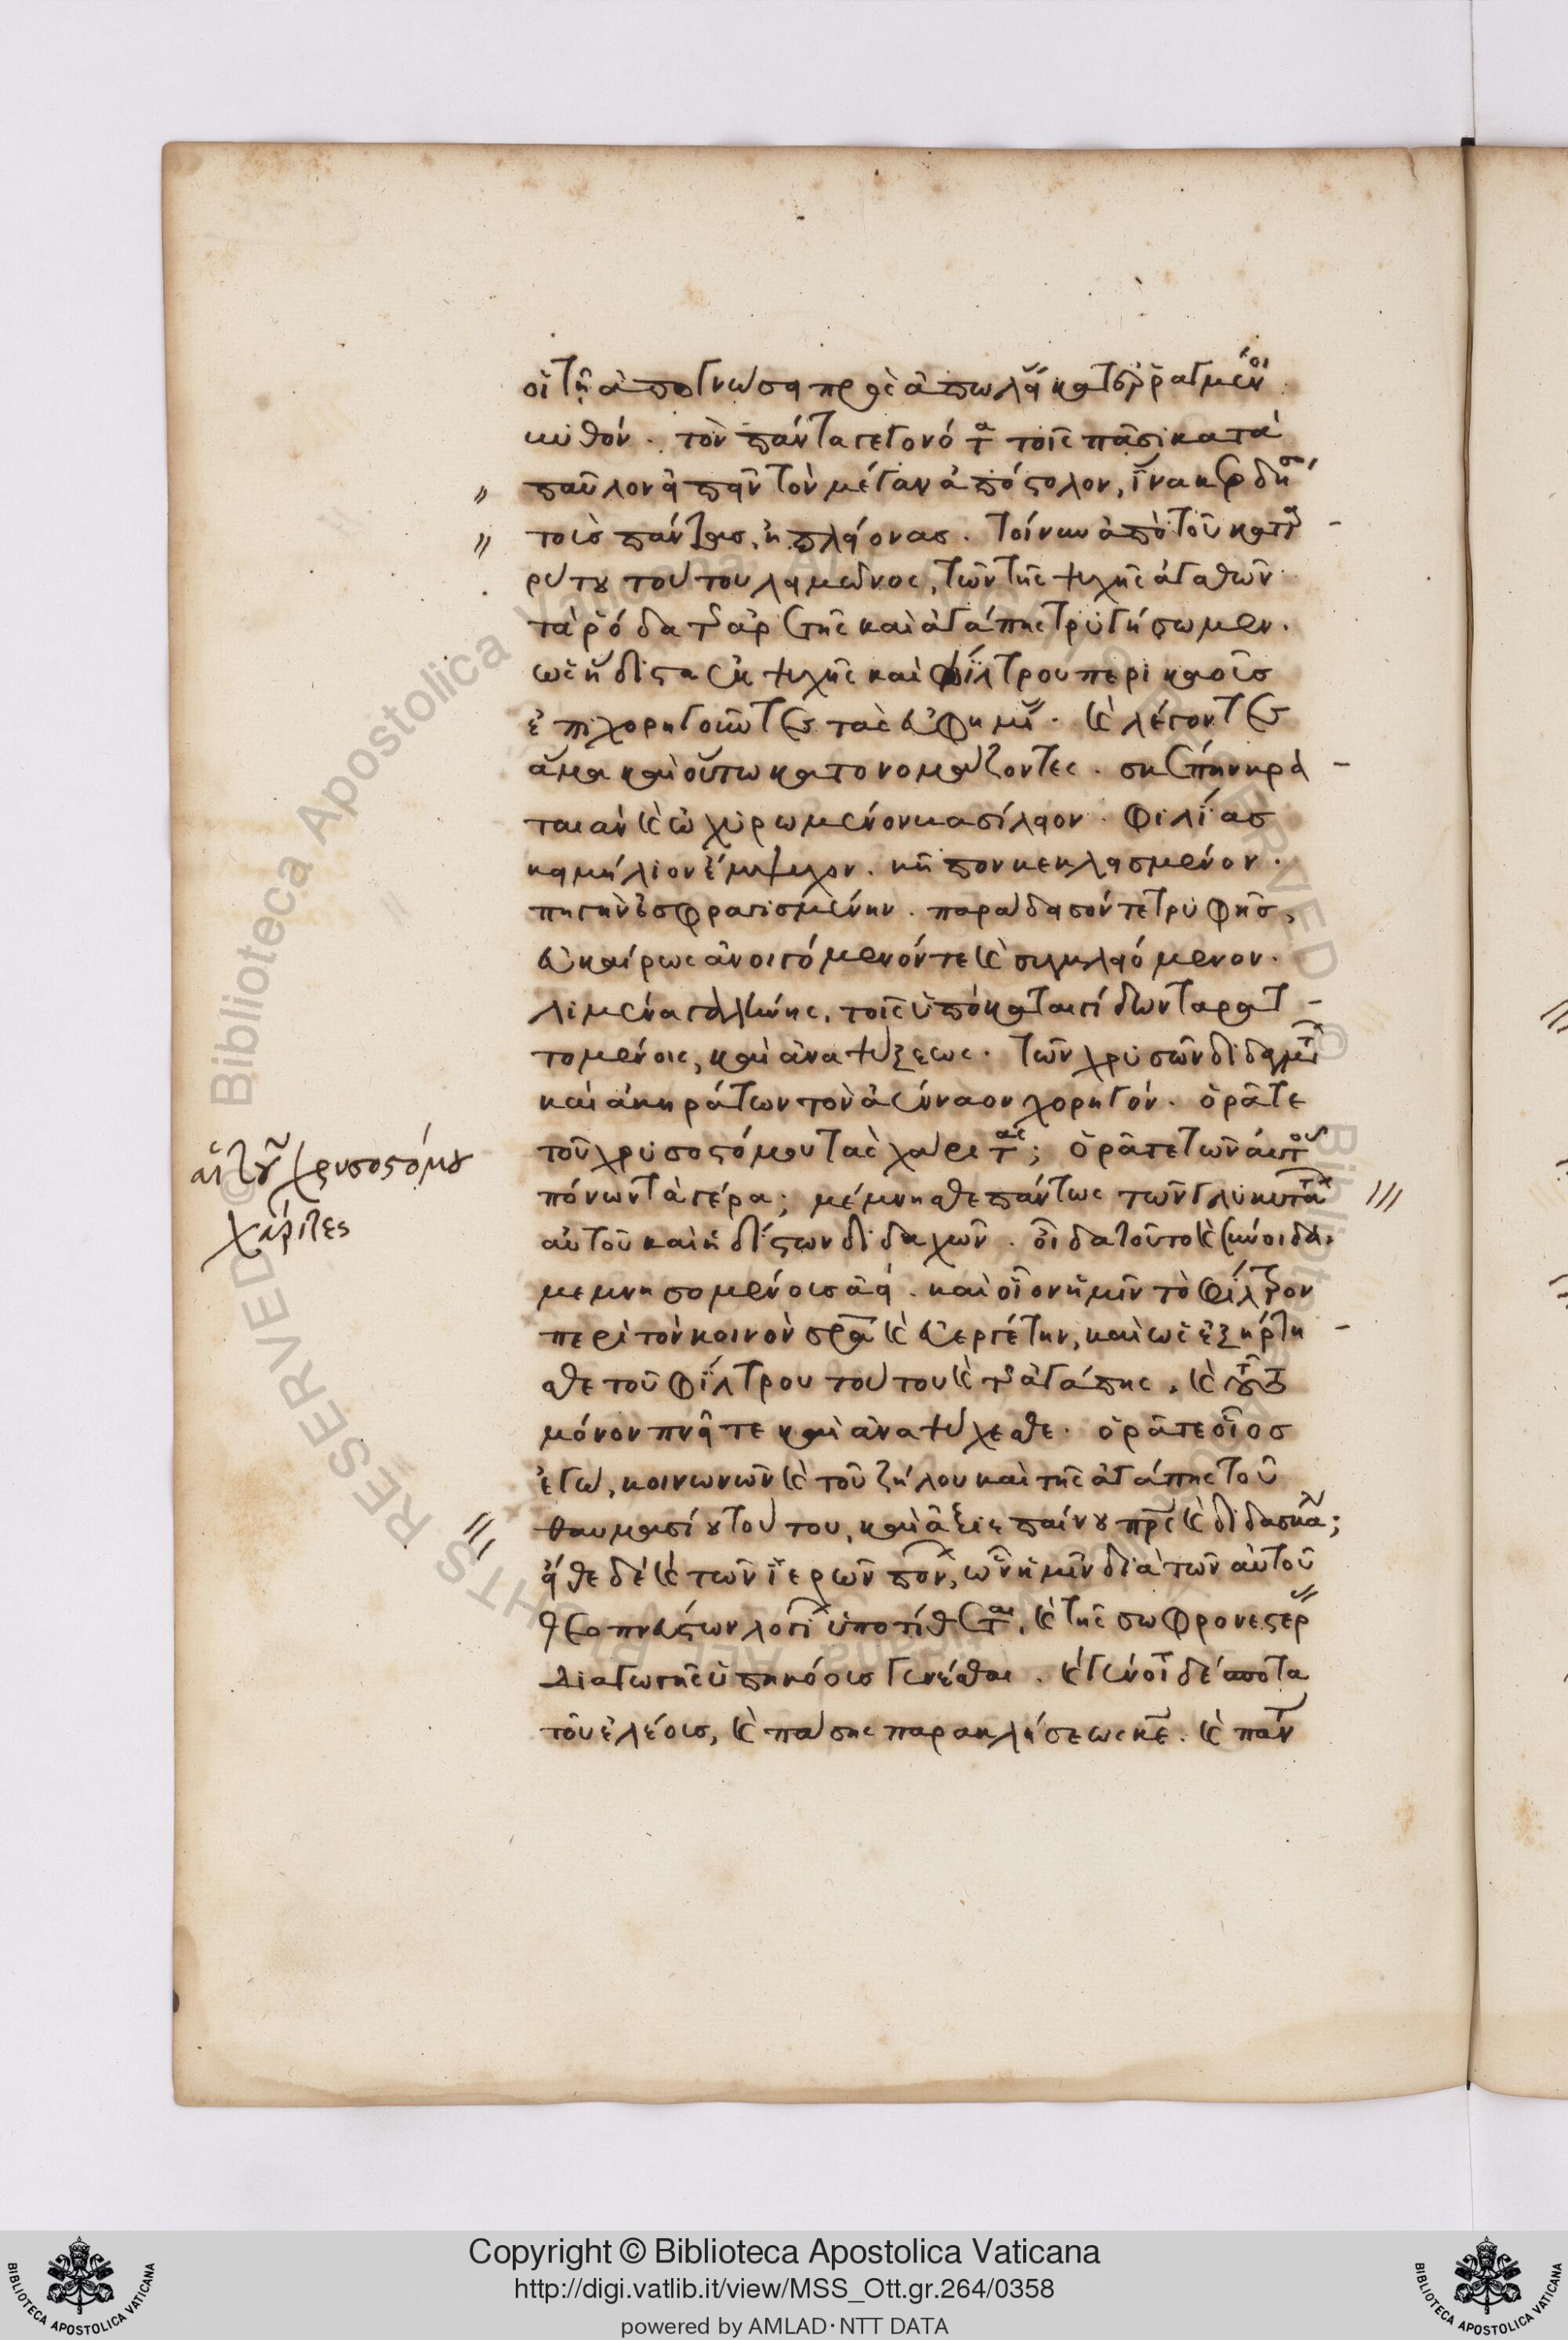 οἱ τῇ ἀπογνώσει πρὸς ἀπώλειαν κατερραγμένοι
μυθόν. τὸν πάντα γεγονότα τοῖς πᾶσι κατὰ
παῦλον εἰπεῖν τὸν μέγαν ἀπόστολον, ἵνα κερδήση
τοὺς πάντας, ἢ πλείονας. τοίνυν ἀπὸ τοῦ
τούτου λειμῶνος, τῶν τῆς ψυχῆς ἀγαθῶν
τὰ ῥόδα τῆς ἀρετῆς καὶ ἀγάπης τρυγήσωμεν.
ὡς ἥδιστα ἐκ ψυχῆς καὶ φίλτρου περικαοῦς
ἐπιχορηγοῦντες τὰς εὐφημίας. καὶ λέγοντες
ἅμα καὶ οὕτω κατονομάζοντες. σκέπην κρα
ταιὰν καὶ ὠχυρωμένον βασίλειον. φιλίας
κειμήλιον ἔμψυχον. κῆπον κεκλεισμένον.
πηγὴν ἐσφραγισμένην. παράδεισόν τε τρυφῆς,
εὐκαίρως ἀνοιγόμενόν τε καὶ συγκλειόμενον.
λιμένα γαλήνης, τοῖς ὑπὸ καταιγίδων ταρατ
τομένοις, καὶ ἀναψύξεως. τῶν χρυσῶν διδαγμάτων
καὶ ἀκηράτων τὸν ἀένναον χορηγόν. ὁρᾶτε
τοῦ χρυσοστόμου τὰς χάριτας; ὁρᾶτε τῶν αὐτοῦ
πόνων τὰ γέρα; μέμνησθε πάντως τῶν γλυκυτάτων
αὐτοῦ καὶ ἡδίστων διδαχῶν. οἶδα τοῦτο καὶ σύνοιδα.
μεμνησομένοις ἀεί. καὶ οἷον ἡμῖν τὸ φίλτρον
περὶ τὸν κοινὸν σωτῆρα καὶ εὐεργέτην, καὶ ὡς ἐξήρτη
σθε τοῦ φίλτρου τούτου καὶ τῆς ἀγάπης, καὶ τοῦτον
μόνον πνεῖτε καὶ ἀναψύχεσθε. ὁρᾶτε οἷος
ἐγώ, κοινωνῶν καὶ τοῦ ζήλου καὶ τῆς ἀγάπης τοῦ
θαυμασίου τούτου, καὶ ἀξιεπαίνου πατρὸς καὶ διδασκάλου;
εἴθε δὲ καὶ τῶν ἱερῶν πόνων, ὧν ἡμῖν διὰ τῶν αὐτοῦ
θεοπνεύστων λόγων ὑποτίθεται, καὶ τῆς σωφρονεστέρας
διαγωγῆς ὑπηκόους γενέσθαι. καὶ γένοιτο δέσποτα
τοῦ ἐλέους, καὶ πάσης παρακλήσεως κύριε. καὶ πάντων
αἱ τοῦ χρυσοστόμου
χάριτες
Copyright © Biblioteca Apostolica Vaticana
http://digi.vatlib.it/view/MSS_Ott.gr.264/0358
powered by AMLAD·NTT DATA
BIBLIOTECA APOSTOLICA VATICANA
BIBLIOTECA APOSTOLICA VATICANA